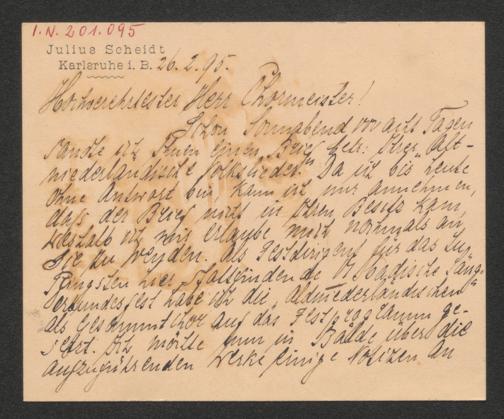 I.N. 201.095
Julius Scheidt
Karlsruhe i. B. 26.2.95.
Hochverehrtester Herr Chormeister!
Schon Sonnabend vor acht Tagen
sandte ich Ihnen einen Brief betr. Ihrer "Alt-
niederländische Volkslieder". Da ich bis heute
ohne Antwort bin kann ich nur annehmen,
daß der Brief nicht in Ihren Besitz kam,
weshalb ich mir erlaube mich nochmals an
Sie zu wenden. Als Festdirigent für das zu
Pfingsten hier stattfindende Badische Säng-
erbundesfest habe ich die "Altniederländischen"
als Gesammtchor auf das Festprogramm ge-
setzt. Ich möchte nun in Bälde über die
aufzuführenden Werke einige Notizen an